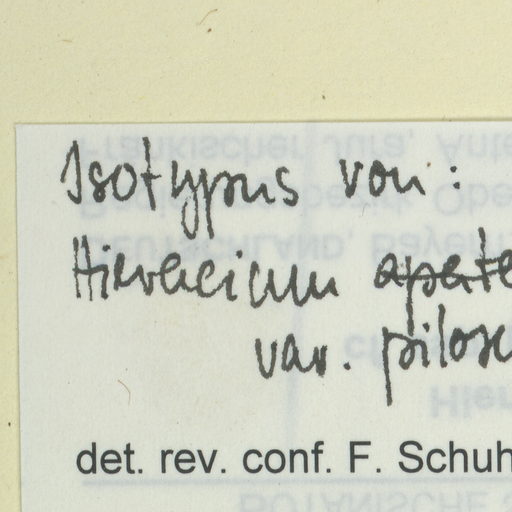 Isotypus von:
Hieracium aperte
var. pilose
det. rev. conf. F. Schuh